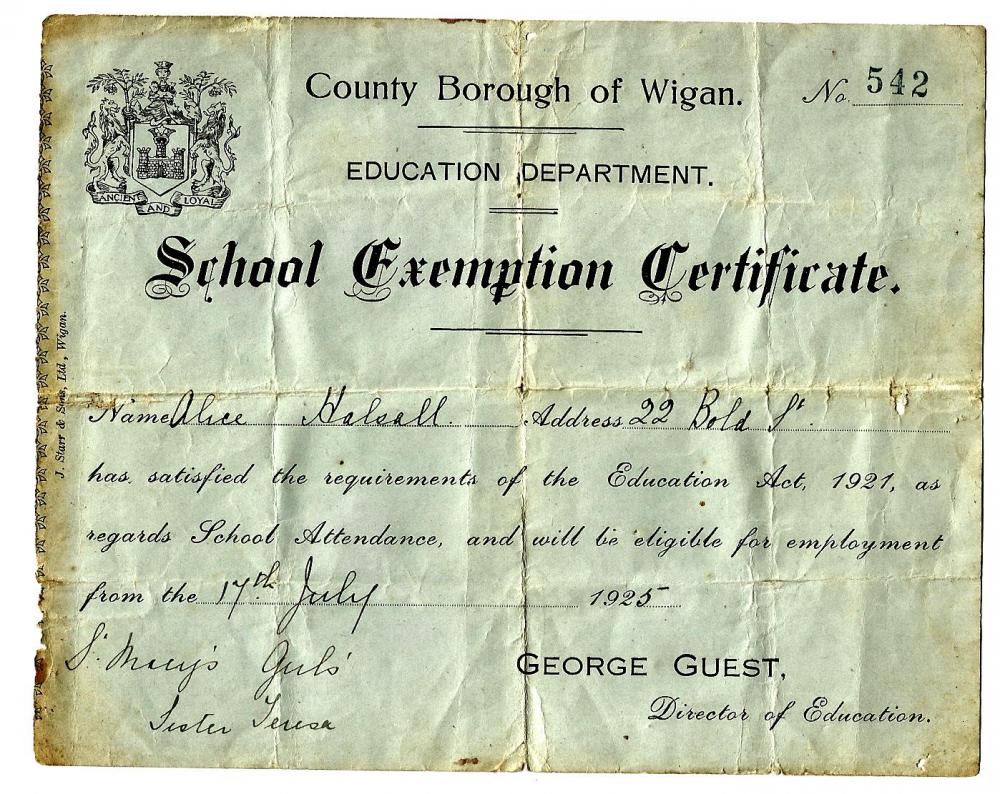 County Borough of Wigan.
No. 542
ANCIENT AND LOYAL
EDUCATION DEPARTMENT.
School Exemption Certificate.
J. Starr & Sons, Ltd., Wigan.
Name Alice Halsall. Address 22 Bold St.
has satisfied the requirements of the Education Act, 1921, as
regards School Attendance, and will be eligible for employment
from the 17th July 1925
St Mary's Girls'
Sister Teresa
GEORGE GUEST,
Director of Education.